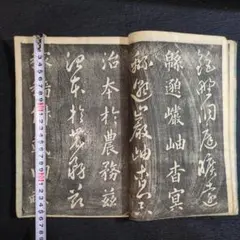 鉅野洞庭曠遠
緜邈巖岫杳冥
緜邈巖岫杳冥
治本於農務茲
治本於農務茲